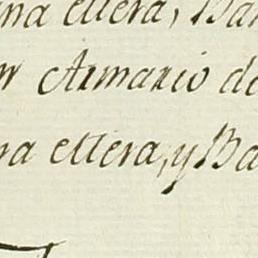 ettera, Ba
Armario de
ra ettera, y Ba